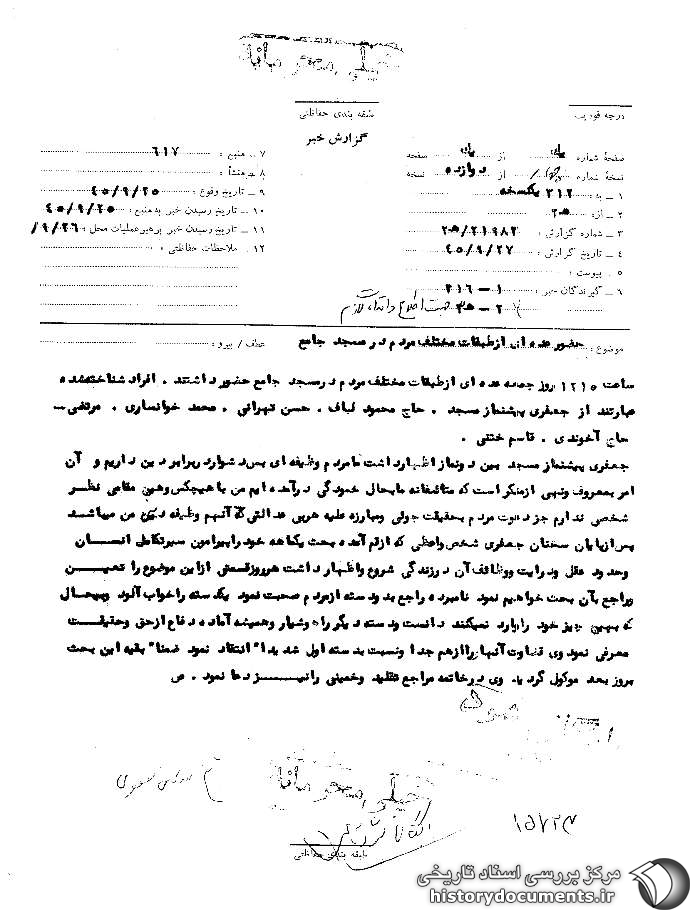 خیلی محرمانه
درجه فوریت
طبقه بندی حفاظتی
گزارش خبر
صفحهٔ شماره یک از یک صفحه
نسخهٔ شماره از دوازده نسخه
۱ – به : ۳۱۲ یکنسخه
۲ – از : ۲۰ ه
۳ – شماره گزارش : ۲۰ ه/۲۱۹۸۲
۴ – تاریخ گزارش : ۴۵/۹/۲۷
۵ – پیوست :
۶ – گیرندگان خبر : ۱ – ۳۱۶
جهت اطلاع و اقدام لازم
۷ – منبع : ۶۱۷
۸ – منشأ :
۹ – تاریخ وقوع : ۴۵/۹/۲۵
۱۰ – تاریخ رسیدن خبر به منبع : ۴۵/۹/۲۵
۱۱ – تاریخ رسیدن خبر برهبر عملیات محل : ۹/۲۶/
۱۲ – ملاحظات حفاظتی :
موضوع : حضور عده ای از طبقات مختلف مردم در مسجد جامع عطف / پیرو :
ساعت ۱۲۱۵ روز جمعه عده ای از طبقات مختلف مردم در مسجد جامع حضور داشتند . افراد شناخته‌شده
عبارتند از جعفری پیشنماز مسجد . حاج محمود لباف . حسن تهرانی . محمد خوانساری . مرتضی
حاج آخوندی . قاسم ختنی .
جعفری پیشنماز مسجد بین دو نماز اظهار داشت ما مردم وظیفه ای بس دشوار در برابر دین داریم و آن
امر بمعروف و نهی از منکر است که متاسفانه ما بحال خمودگی درآمده ایم من با هیچکس و هیچ مقامی نظر
شخصی ندارم جز دعوت مردم بحقیقت جوئی و مبارزه علیه هر بی عدالتی که آنهم وظیفه دینی من میباشد
پس از پایان سخنان جعفری شخص واعظی که از قم آمده بحث یکماهه خود را پیرامون سیر تکاملی انسان
وحدود عقل و درایت و وظائف آن در زندگی شروع و اظهار داشت هر روز قسمتی از این موضوع را تعیین
و راجع بآن بحث خواهیم نمود نامبرده راجع بدو دسته از مردم صحبت نمود یکدسته را خواب آلود و بیحال
که بهیچ چیز خود را وارد نمیکنند دانست و دسته دیگر را هوشیار و همیشه آماده دفاع از حق و حقیقت
معرفی نمود وی قضاوت آنها را از هم جدا و نسبت بدسته اول شدیدا" انتقاد نمود ضمنا" بقیه این بحث
بروز بعد موکول گردید. وی در خاتمه مراجع تقلید و خمینی را نیز دعا نمود . ص
خیلی محرمانه
۱۵۷۲۳
طبقه بندی حفاظتی
مرکز بررسی اسناد تاریخی
historydocuments.ir